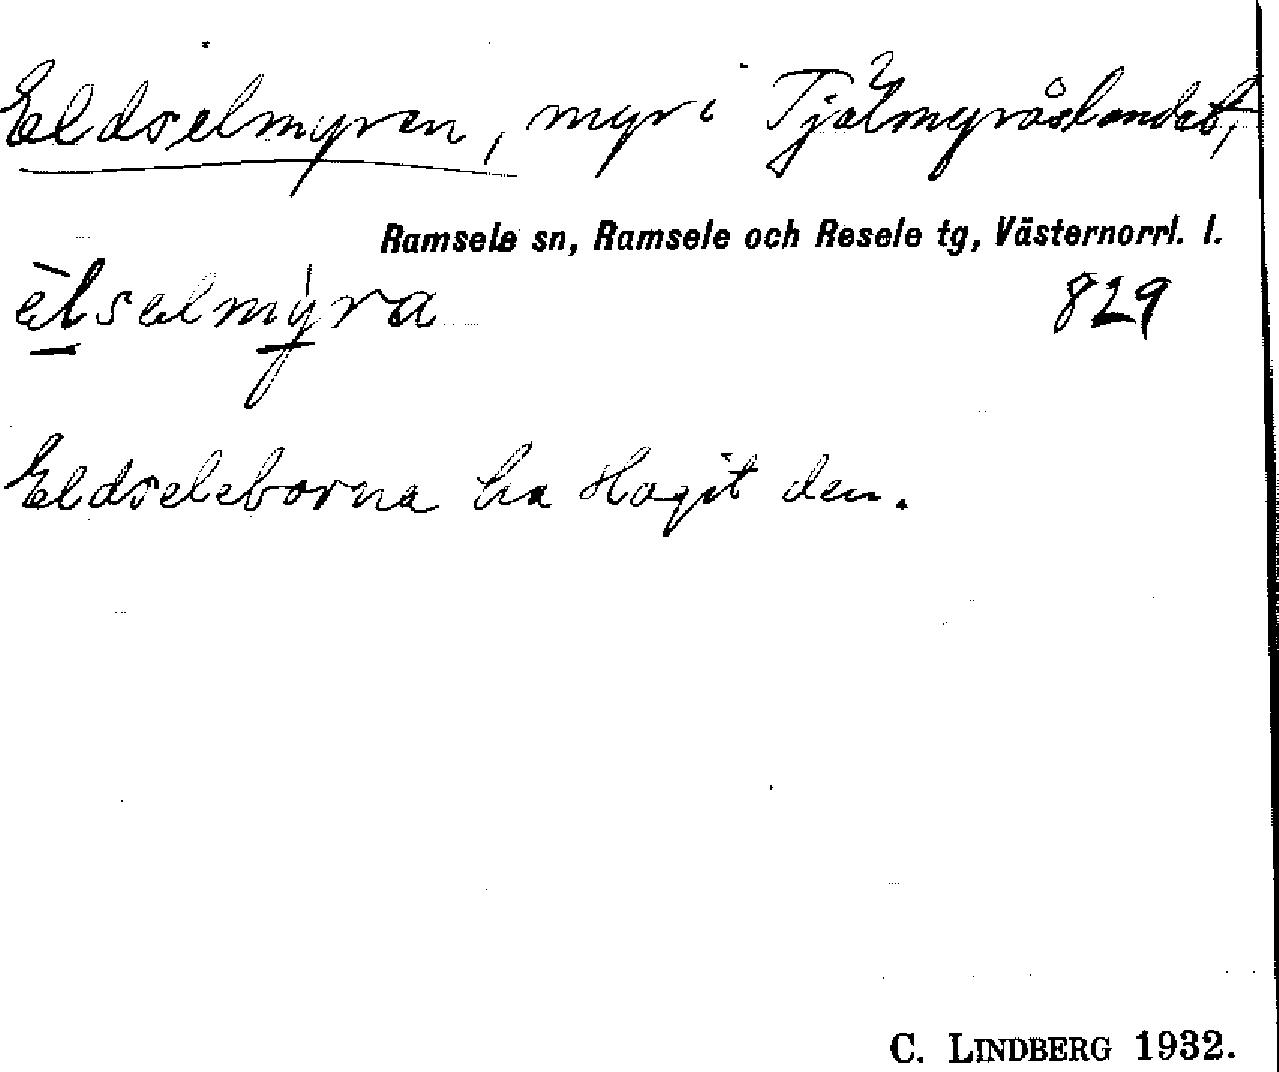 Eldselmyren, myr i Tjälmyråslandet,
Ramsele sn, Ramsele och Resele tg, Västernorrl. l.
èlselmýra 829
Eldseleborna ha slagit den.
C. LINDBERG 1932.